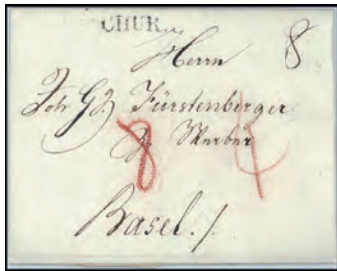 CHUR.
8
Herrn
Joh Gg Fürstenberger
z. Werber
8 4
Basel./.